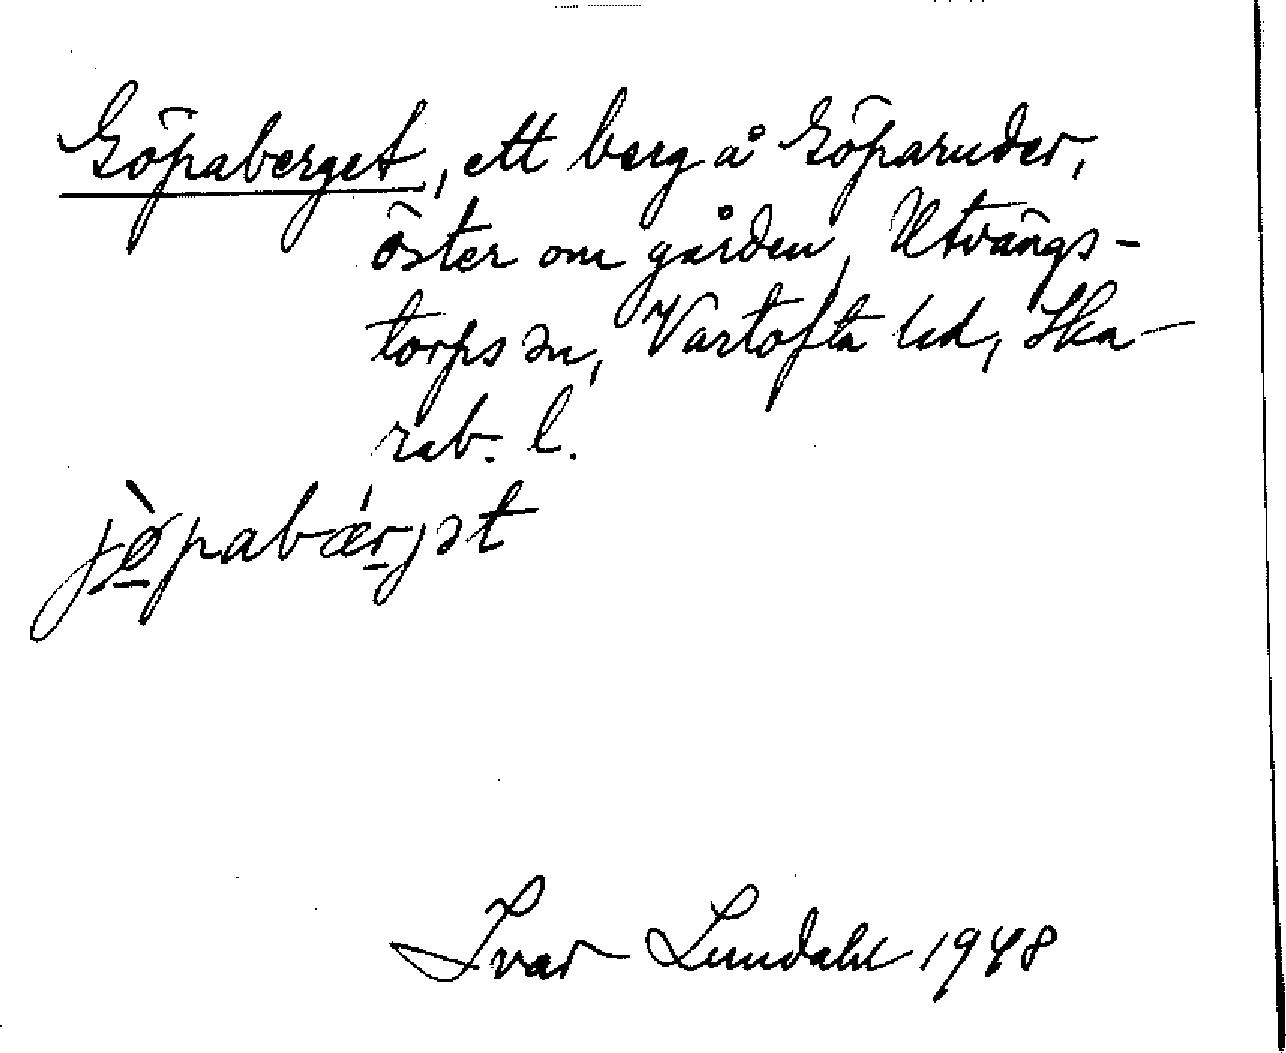 Göpaberget, ett berg å Göparuder,
öster om gården, Utvängs-
torps sn, Vartofta hd, Ska-
rab. l.
jø̀pabærjət
Ivar Lundahl 1948